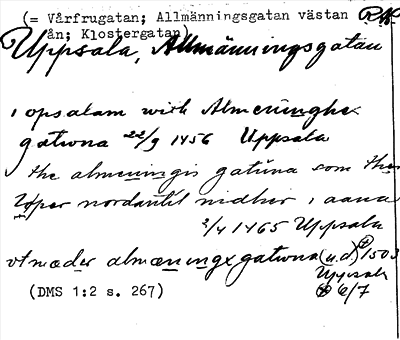 (= Vårfrugatan; Allmänningsgatan västan
ån; Klostergatan)
Uppsala, Allmänningsgatan
i opsalam widh Almeninghx
gatwna 22/9 1456 Uppsala
the almenningis gatuna som
løper nordantil nidher i aana
2/4 1465 Uppsala
vt mæder almænningx gatwna (u.d.) 1503
Uppsala
6/7
(DMS 1:2 s. 267)